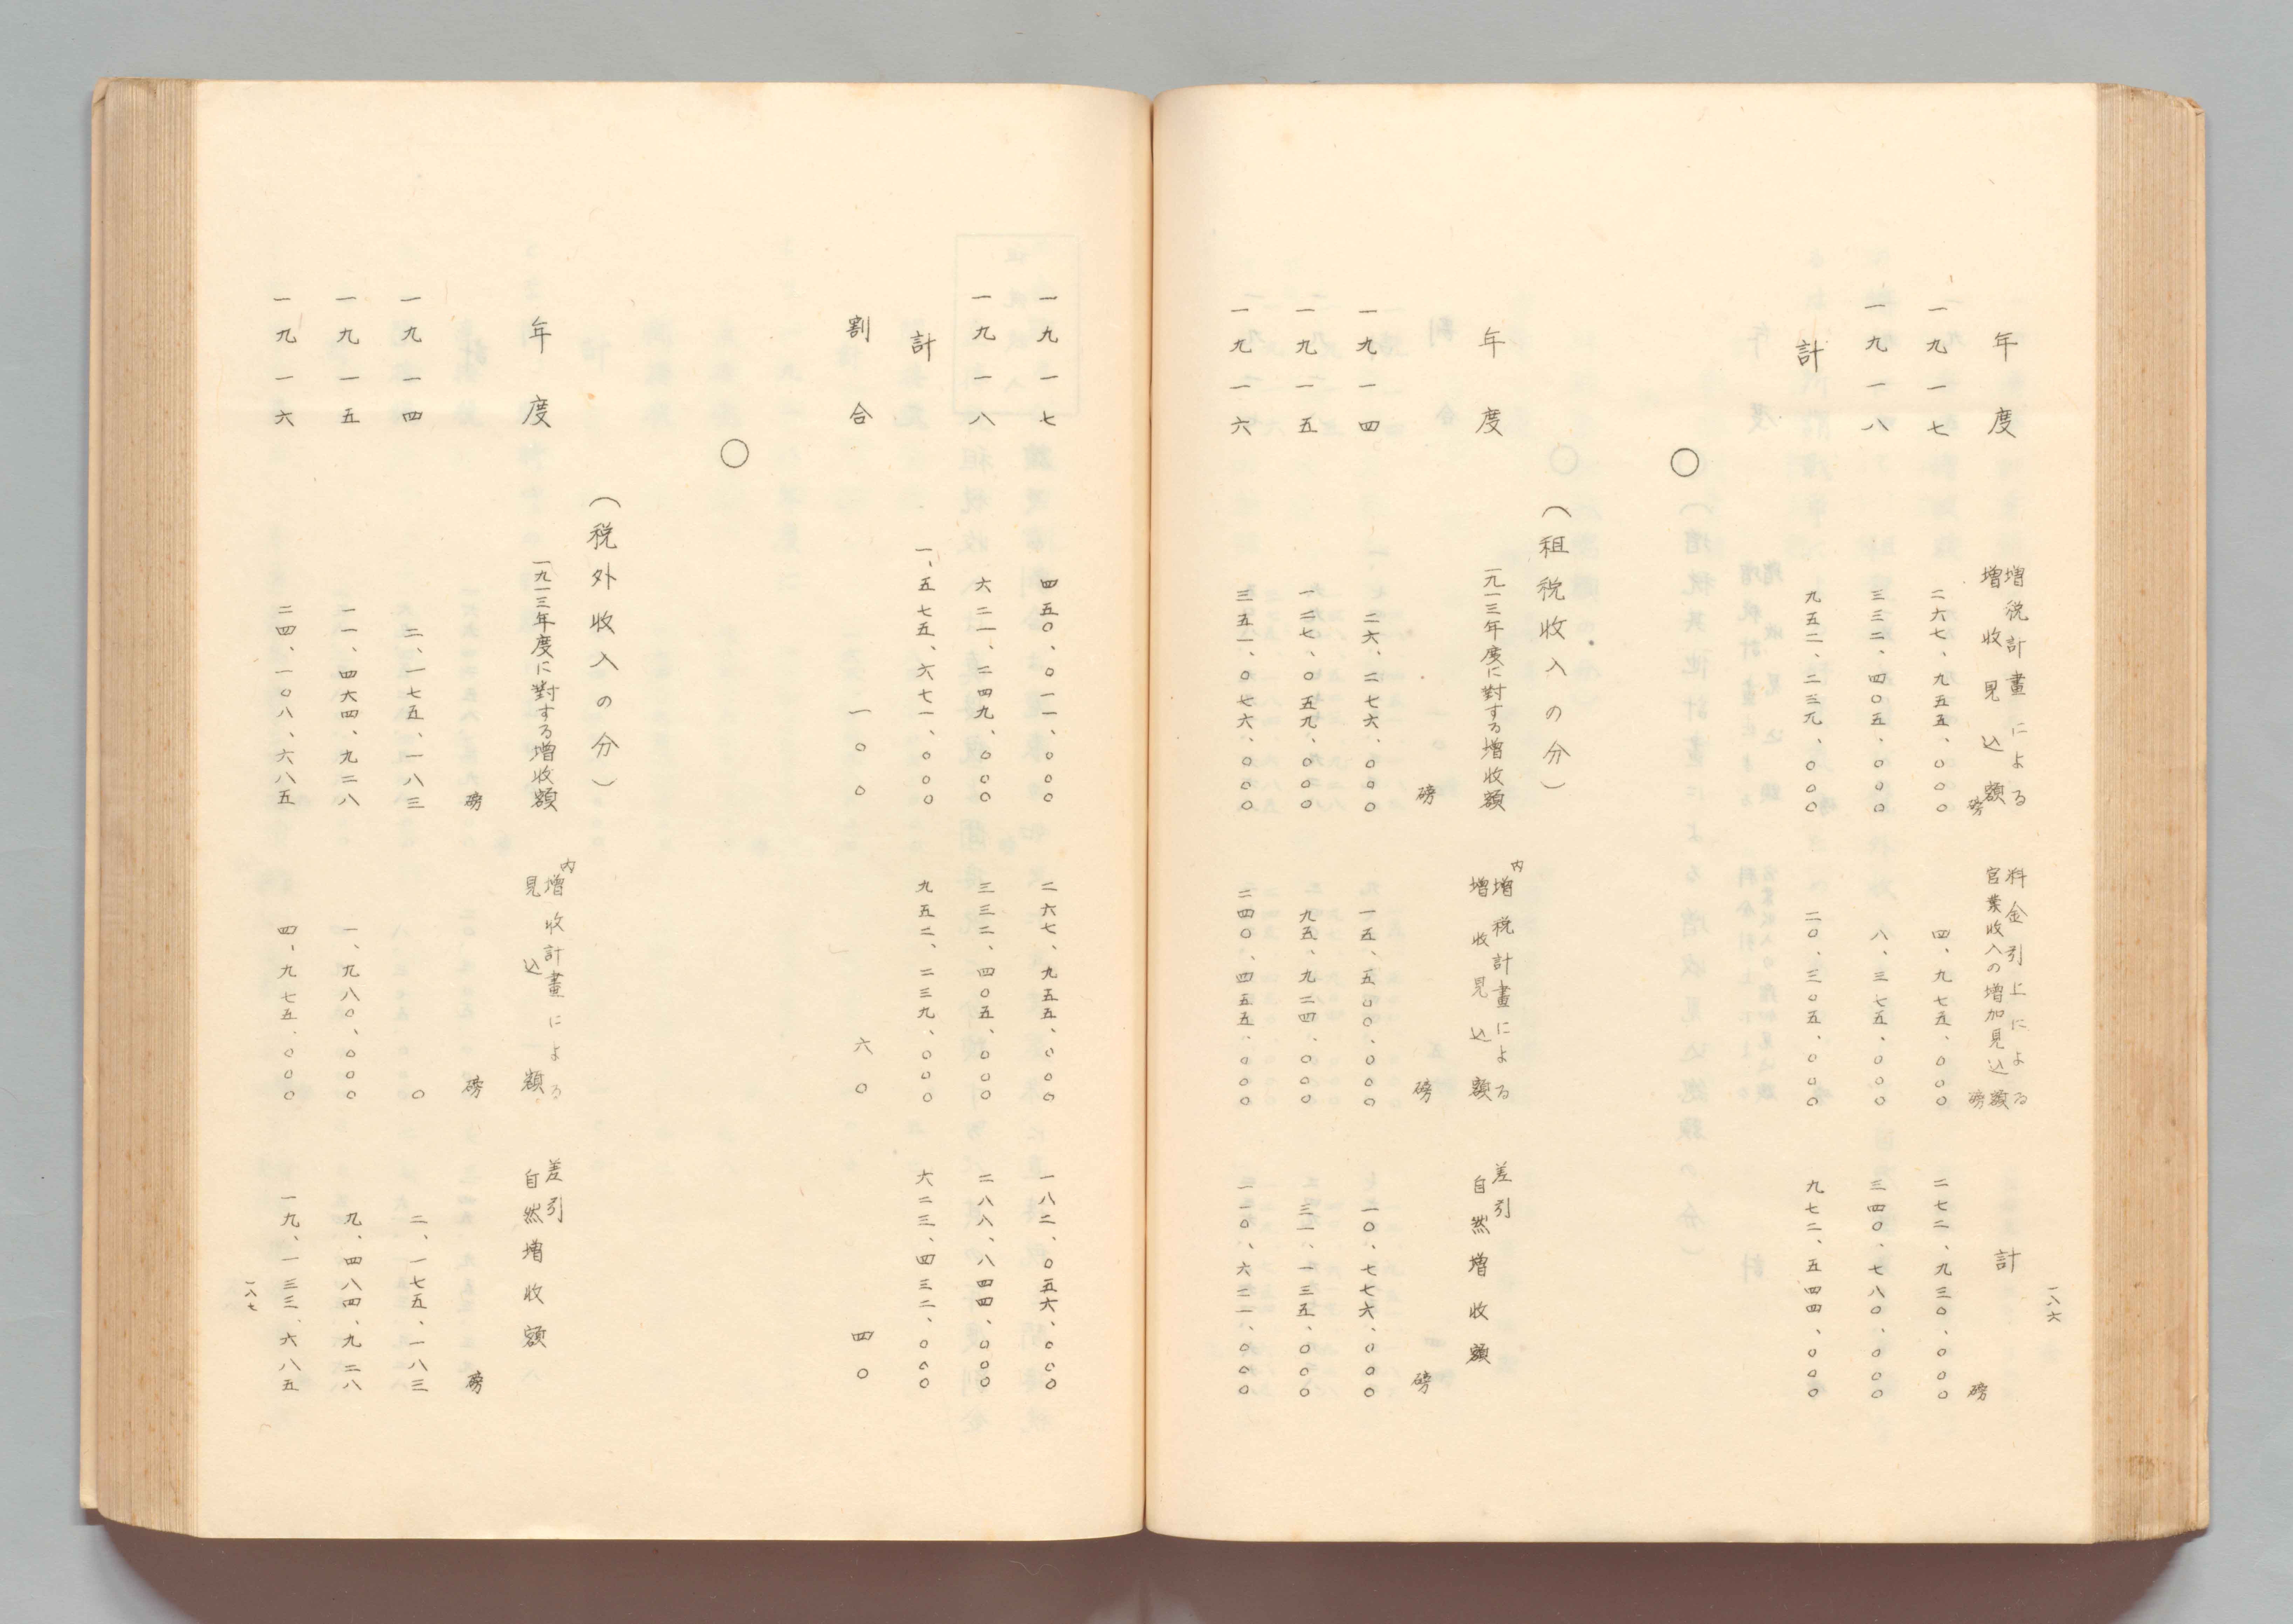 年度 増税計畫による増收見込額 料金引上による官業收入の増加見込額 計
磅 磅 磅
一九一七 二六七、九五五、〇〇〇 四、九七五、〇〇〇 二七二、九三〇、〇〇〇
一九一八 三三二、四〇五、〇〇〇 八、三七五、〇〇〇 三四〇、七八〇、〇〇〇
計 九五二、二三九、〇〇〇 二〇、三〇五、〇〇〇 九七二、五四四、〇〇〇
〇
（租税收入の分）
年度 一九一三年度に對する増收額 内増税計畫による増收見込額 差引自然増收額
磅 磅 磅
一九一四 二六、二七六、〇〇〇 一五、五〇〇、〇〇〇 一〇、七七六、〇〇〇
一九一五 一二七、〇五九、〇〇〇 九五、九二四、〇〇〇 三一、一三五、〇〇〇
一九一六 三五一、〇七六、〇〇〇 二四〇、四五五、〇〇〇 一一〇、六二一、〇〇〇
一八六
一九一七 四五〇、〇一一、〇〇〇 二六七、九五五、〇〇〇 一八二、〇五六、〇〇〇
一九一八 六二一、二四九、〇〇〇 三三二、四〇五、〇〇〇 二八八、八四四、〇〇〇
計 一、五七五、六七一、〇〇〇 九五二、二三九、〇〇〇 六二三、四三二、〇〇〇
割合 一〇〇 六〇 四〇
〇
（税外收入の分）
年度 一九一三年度に對する増收額 内増收計畫による見込額 差引自然増收額
磅 磅 磅
一九一四 二、一七五、一八三 〇 二、一七五、一八三
一九一五 一一、四六四、九二八 一、九八〇、〇〇〇 九、四八四、九二八
一九一六 二四、一〇八、六八五 四、九七五、〇〇〇 一九、一三三、六八五
一八七